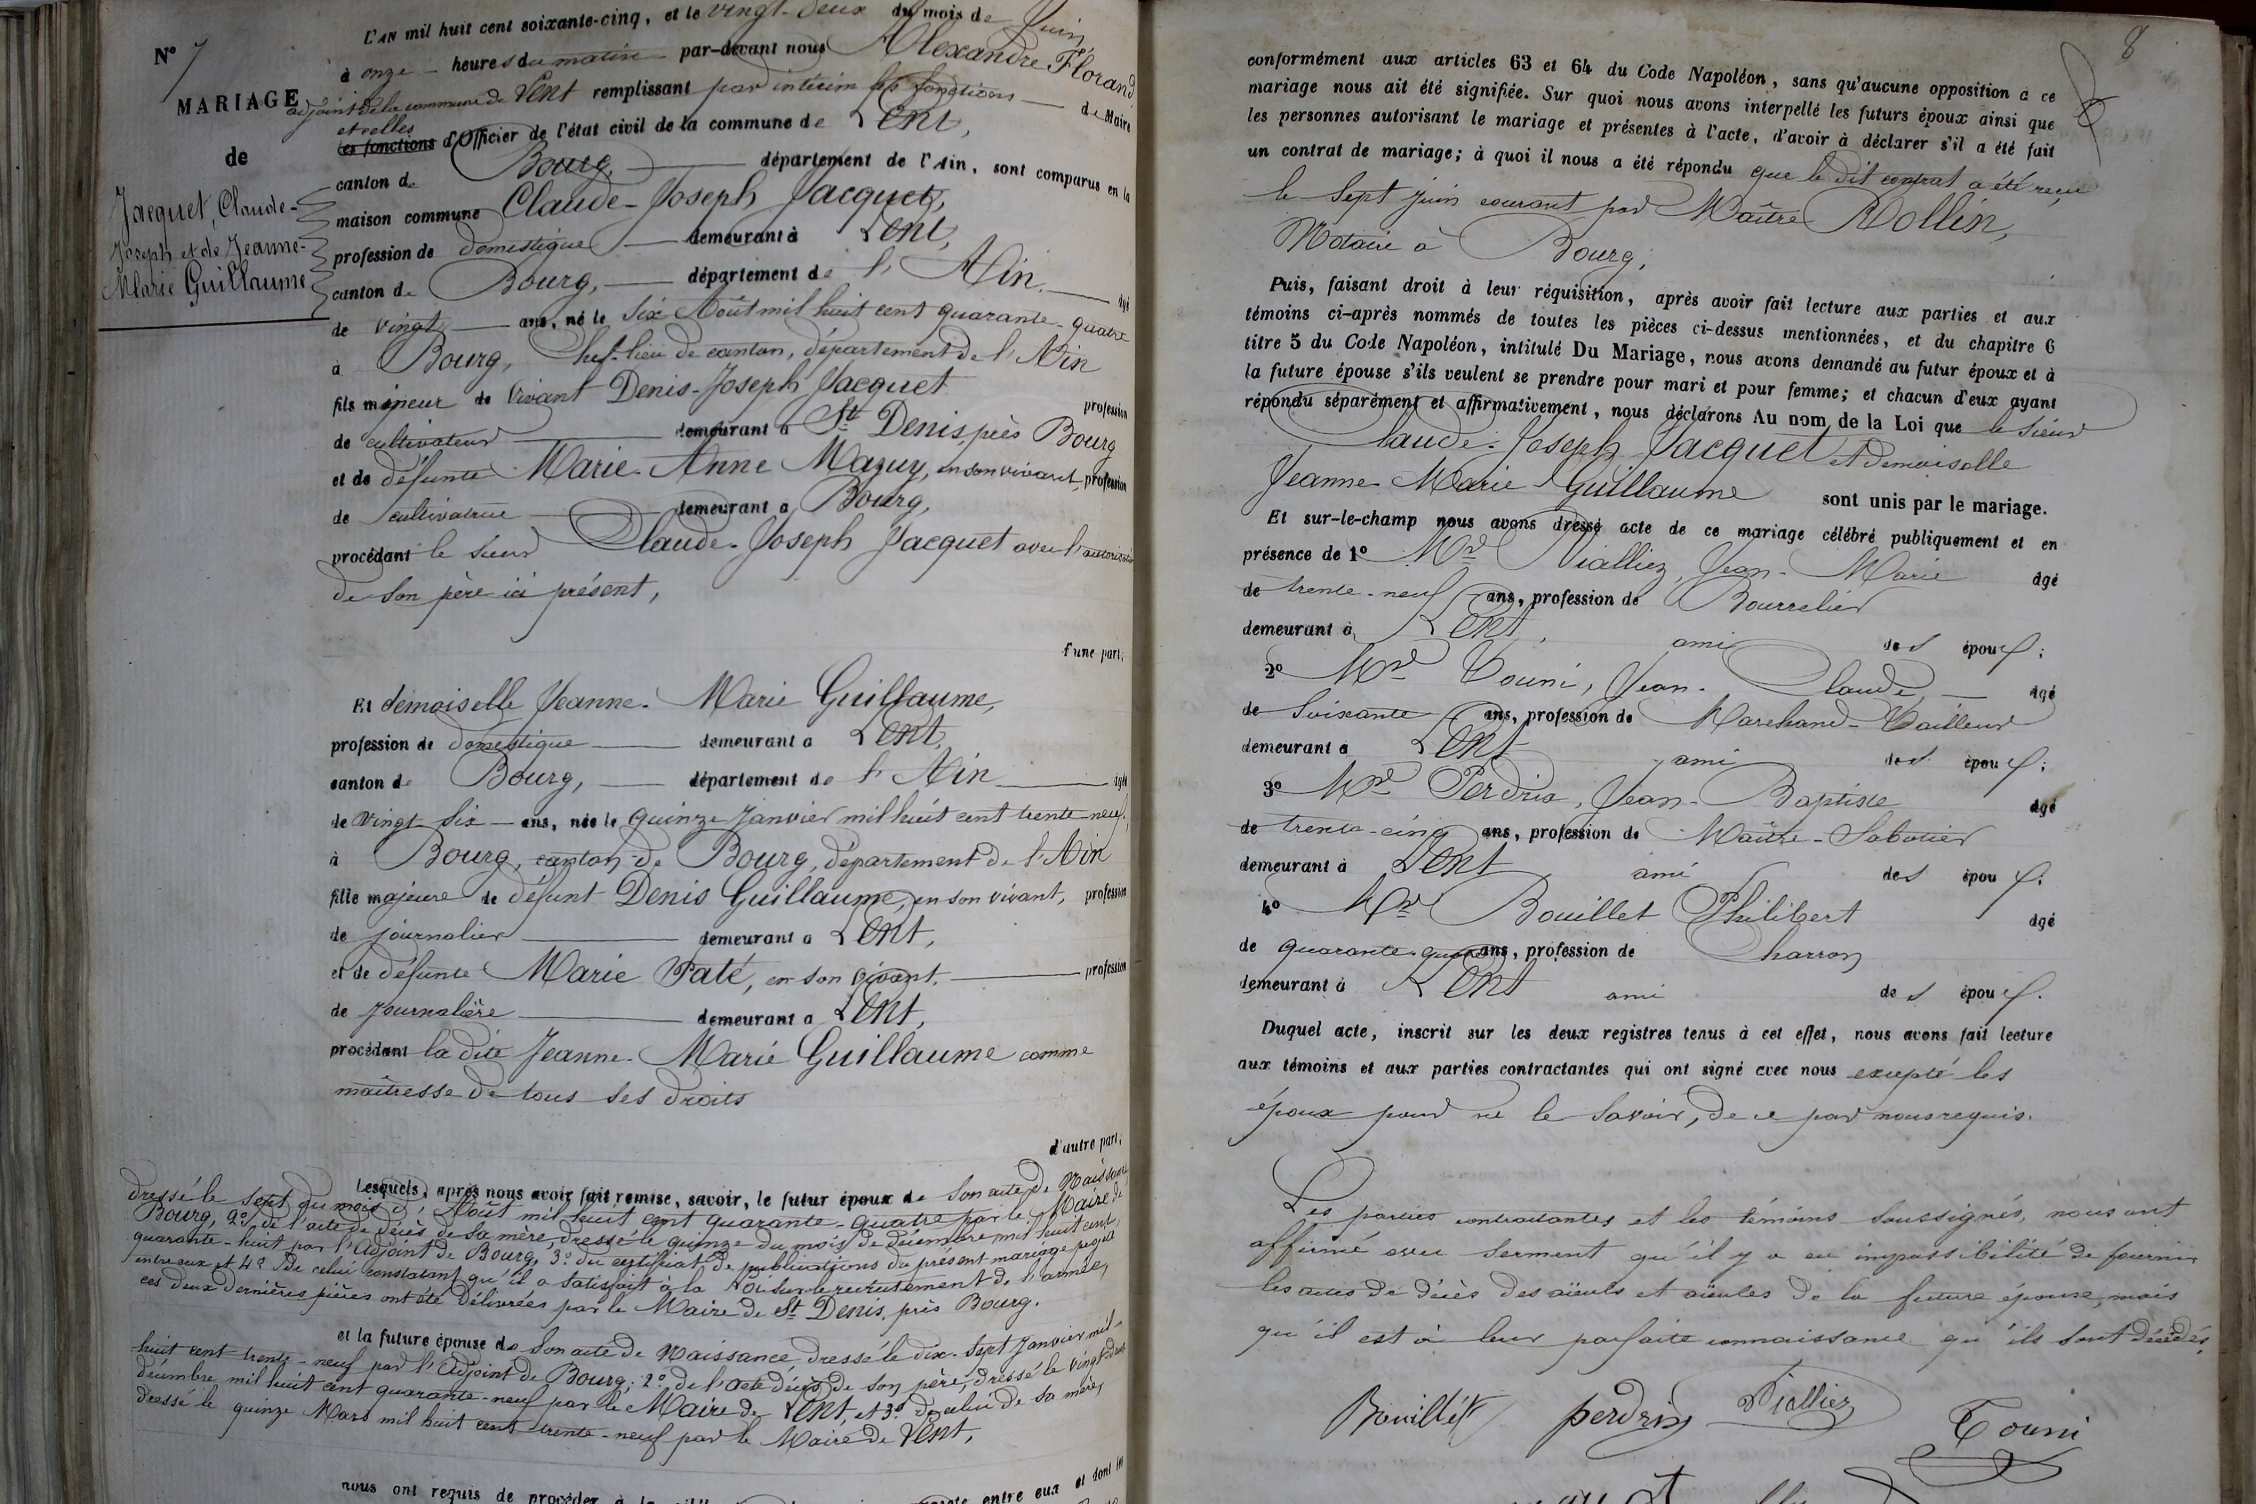 N° 7
MARIAGE
de
Jacquet, Claude-
Joseph et de Jeanne-
Marie Guillaume
L'AN mil huit cent soixante-cinq, et le vingt-deux du mois de Juin
à onze heures du matin par-devant nous Alexandre Florand
adjoint de la commune de Lent remplissant par intérim les fonctions de Maire
et celles
les fonctions d'Officier de l'état civil de la commune de Lent,
canton de Bourg, département de l'Ain, sont comparus en la
maison commune Claude-Joseph Jacquet,
profession de domestique demeurant à Lent,
canton de Bourg, département de l'Ain. âgé
de vingt ans, né le six Août mil huit cent quarante-quatre
à Bourg, Chef-lieu de canton, département de l'Ain
fils mineur de vivant Denis-Joseph Jacquet profession
de cultivateur demeurant à St Denis, près Bourg
et de défunte Marie-Anne Mazuy, en son vivant, profession
de cultivatrice demeurant à Bourg,
procédant le sieur Claude-Joseph Jacquet avec l'autorisation
de son père ici présent,
d'une part,
Et demoiselle Jeanne-Marie Guillaume,
profession de domestique demeurant à Lent,
canton de Bourg, département de l'Ain âgée
de vingt six ans, née le quinze Janvier mil huit cent trente-neuf,
à Bourg, canton de Bourg, département de l'Ain
fille majeure de défunt Denis Guillaume, en son vivant, profession
de journalier demeurant à Lent,
et de défunte Marie Paté, en son vivant, profession
de journalière demeurant à Lent,
procédant la dite Jeanne-Marie Guillaume comme
maîtresse de tous ses droits
d'autre part,
Lesquels, après nous avoir fait remise, savoir, le futur époux de son acte de Naissance
dressé le sept du mois d'Août mil huit cent quarante-quatre par le Maire de
Bourg, 2° de l'acte de décès de sa mère, dressé le quinze du mois de décembre mil huit cent
quarante-huit par l'Adjoint de Bourg, 3° du certificat de publications du présent mariage projeté
entre eux et 4° de celui constatant qu'il a satisfait à la Loi sur le recrutement de l'armée,
ces deux dernières pièces ont été délivrées par le Maire de St Denis, près Bourg.
et la future épouse de son acte de Naissance, dressé le dix-sept Janvier mil
huit cent trente-neuf par l'Adjoint de Bourg; 2° de l'acte décès de son père, dressé le vingt-deux
décembre mil huit cent quarante-neuf par le Maire de Lent, et 3° de celui de sa mère,
dressé le quinze Mars mil huit cent trente-neuf par le Maire de Lent,
nous ont requis de procéder à la entre eux et dont les
8
conformément aux articles 63 et 64 du Code Napoléon, sans qu'aucune opposition à ce
mariage nous ait été signifiée. Sur quoi nous avons interpellé les futurs époux ainsi que
les personnes autorisant le mariage et présentes à l'acte, d'avoir à déclarer s'il a été fait
un contrat de mariage; à quoi il nous a été répondu que le dit contrat a été reçu
le sept juin courant par Maître Rollin,
Notaire à Bourg;
Puis, faisant droit à leur réquisition, après avoir fait lecture aux parties et aux
témoins ci-après nommés de toutes les pièces ci-dessus mentionnées, et du chapitre 6
titre 5 du Code Napoléon, intitulé Du Mariage, nous avons demandé au futur époux et à
la future épouse s'ils veulent se prendre pour mari et pour femme; et chacun d'eux ayant
répondu séparément et affirmativement, nous déclarons Au nom de la Loi que le sieur
Claude-Joseph Jacquet et demoiselle
Jeanne-Marie Guillaume sont unis par le mariage.
Et sur-le-champ nous avons dressé acte de ce mariage célébré publiquement et en
présence de 1° Mr Vialliez, Jean-Marie âgé
de trente-neuf ans, profession de Bourrelier
demeurant à Lent, ami des époux;
2° Mr Touni, Jean-Claude, âgé
de soixante ans, profession de Marchand-Tailleur
demeurant à Lent ami des époux;
3° Mr Perdrix, Jean-Baptiste âgé
de trente-cinq ans, profession de Maître-Sabotier
demeurant à Lent ami des époux;
4° Mr Bouillet Philibert âgé
de quarante-quatre ans, profession de Charron
demeurant à Lent ami des époux.
Duquel acte, inscrit sur les deux registres tenus à cet effet, nous avons fait lecture
aux témoins et aux parties contractantes qui ont signé avec nous excepté les
époux pour ne le savoir, de ce par nous requis.
Les parties contractantes et les témoins soussignés, nous ont
affirmé avec serment qu'il y a eu impossibilité de fournir
les actes de décès des aïeuls et aïeules de la future épouse, mais
qu'il est à leur parfaite connaissance qu'ils sont décédés.
Bouillet perdrix Vialliez Touni